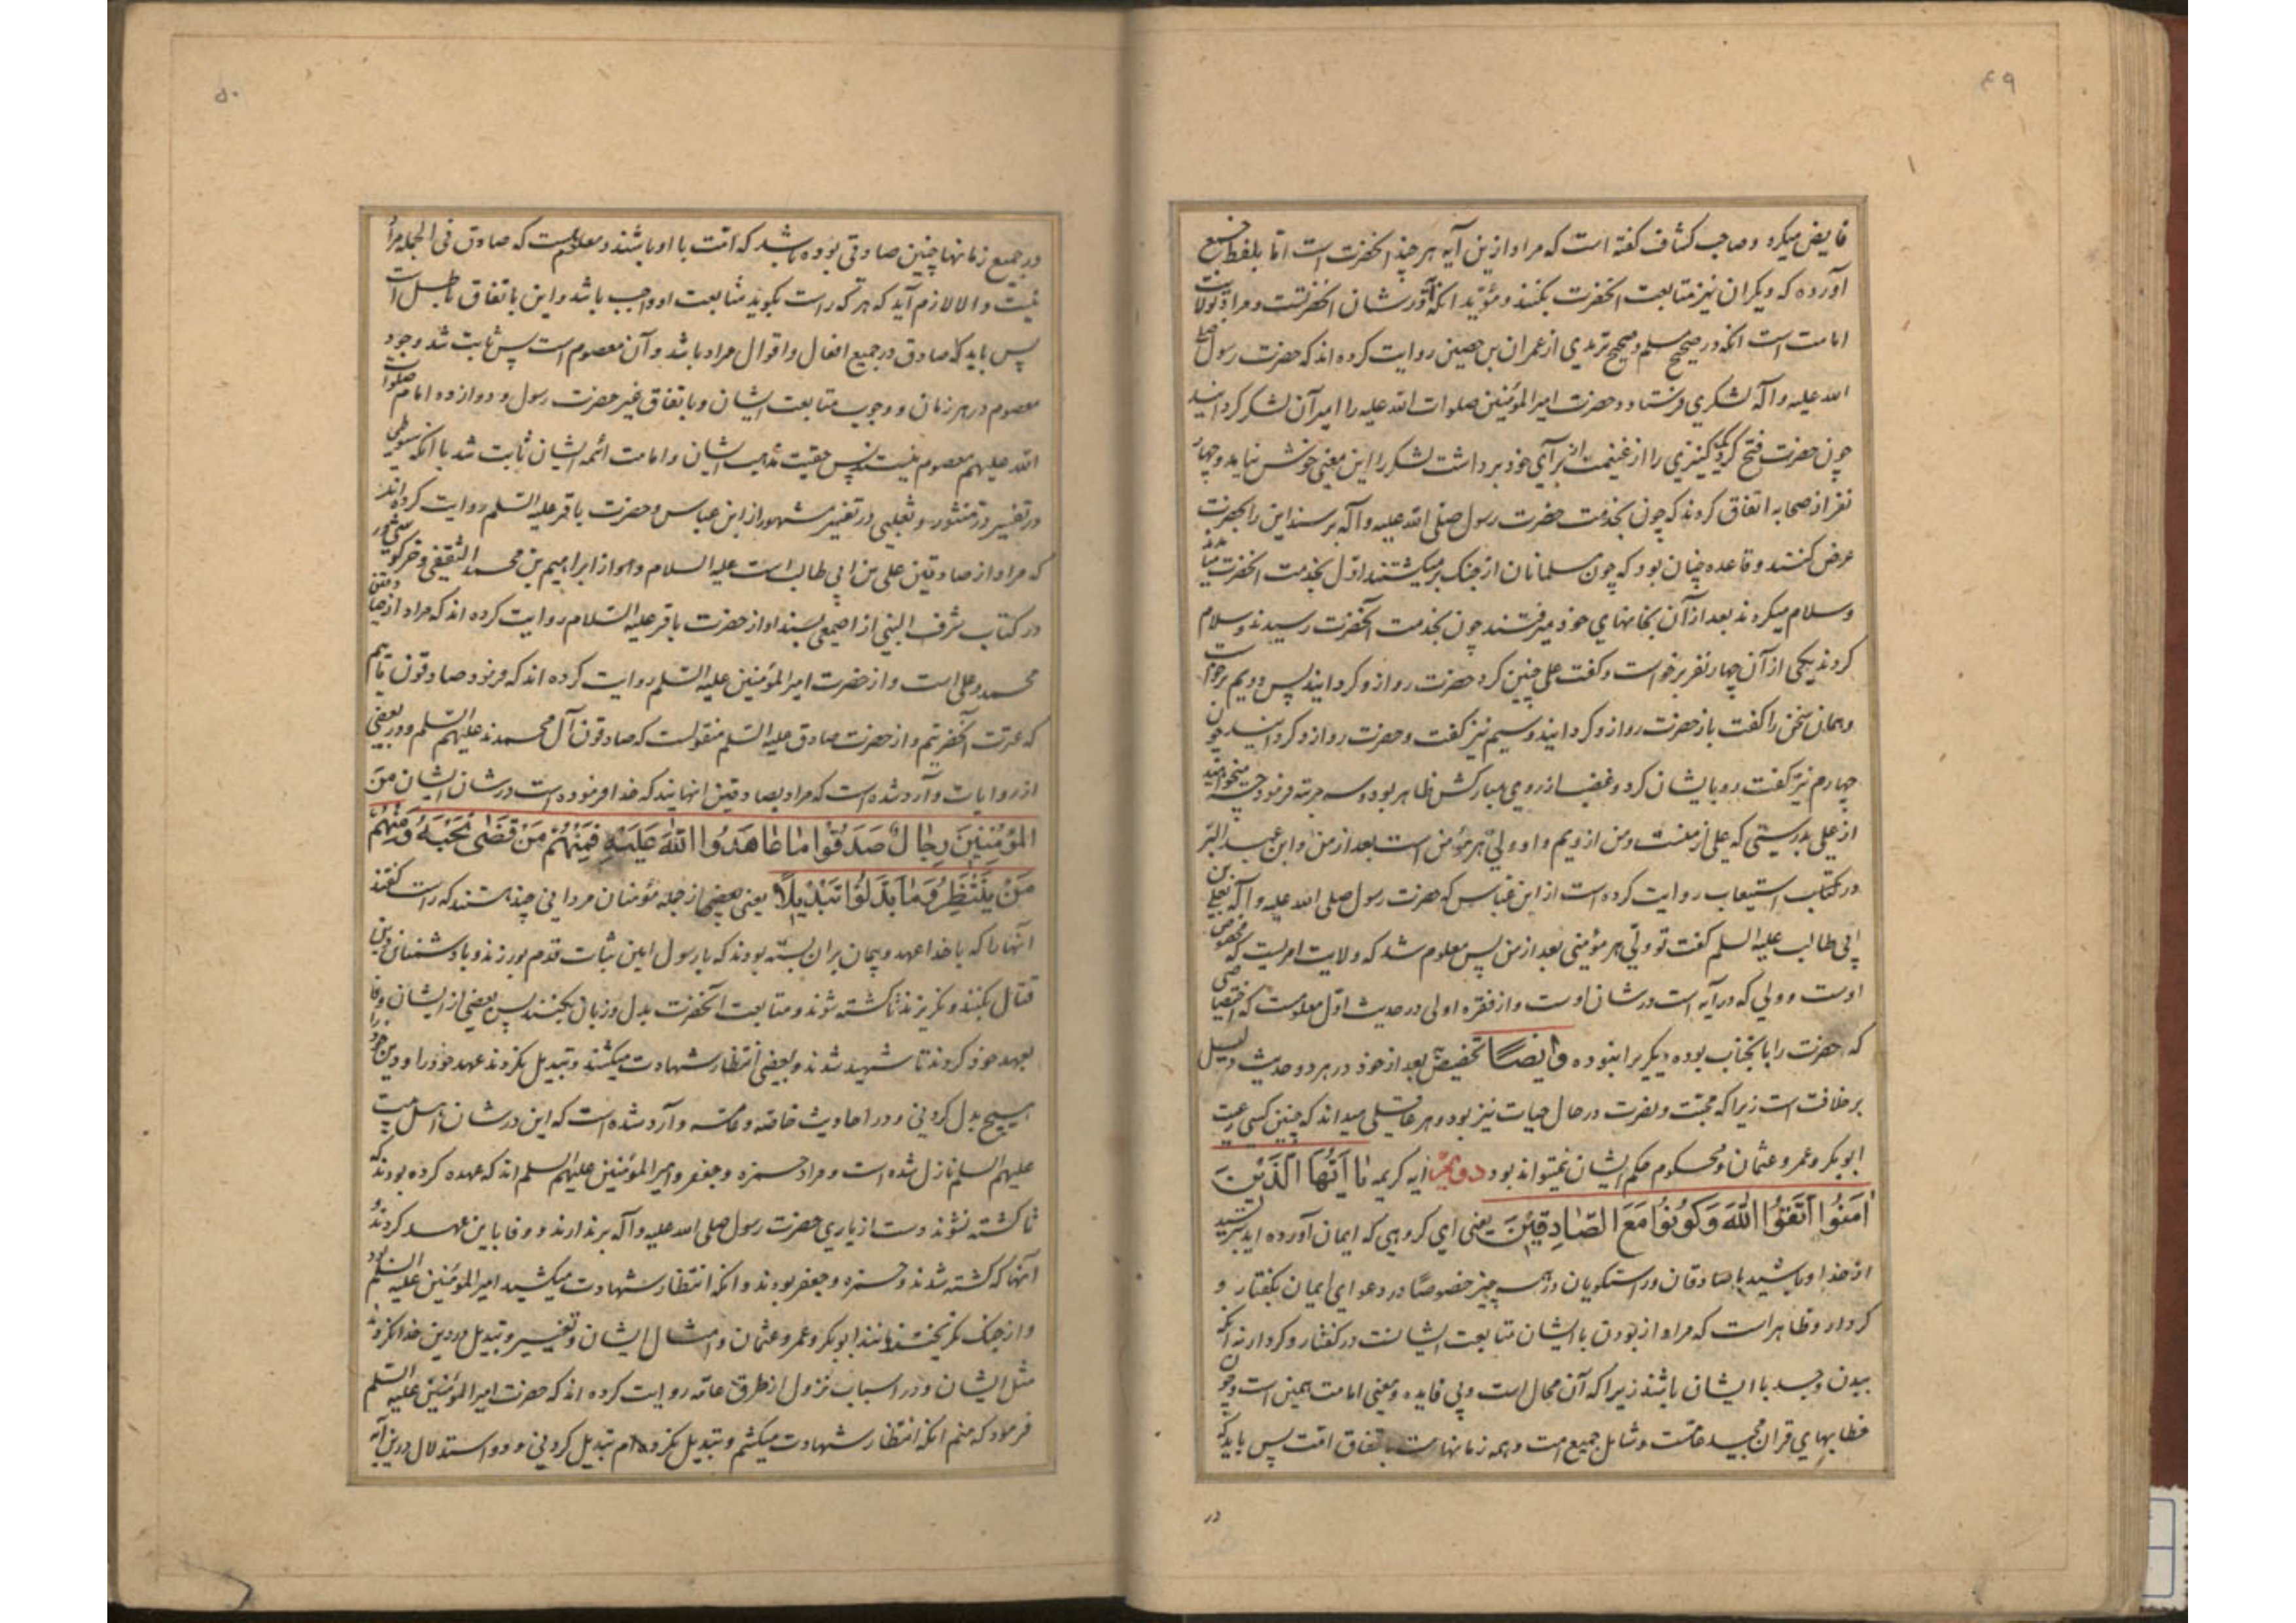 ۴۹
فایض میکرد و صاحب کشاف گفته است که مراد ازین آیه هر چند آنحضرت است اما بلفظ جمع
آورده که دیگران نیز متابعت آنحضرت بکنند و مؤید آنکه در شان آنحضرتست و مراد بولایت
امامت است آنکه در صحیح مسلم و صحیح ترمذی از عمران بن حصین روایت کرده اند که حضرت رسول صلی
الله علیه و آله لشکری فرستاد و حضرت امیر المؤمنین صلوات الله علیه را امیر آن لشکر گردانید
چون حضرت فتح کرد کنیزی را از غنیمت از برای خود برداشت لشکر را این معنی خوش نیامد و چهار
نفر از صحابه اتفاق کردند که چون بخدمت حضرت رسول صلی الله علیه و آله برسند این را بحضرت
عرض کنند و قاعده چنان بود که چون مسلمانان از جنک بر میکشتند اول بخدمت آنحضرت میآمدند
و سلام میکردند بعد از آن بخانهای خود میرفتند چون بخدمت آنحضرت رسیدند و سلام
کردند یکی از آن چهار نفر برخواست و گفت علی چنین کرد حضرت رو ازو گردانیدند پس دویم برخواست
و همان سخن را گفت باز حضرت رو ازو گردانید و سیم نیز گفت و حضرت رو ازو گردانید چون
چهارم نیز گفت رو بایشان کرد و غضب از روی مبارکش ظاهر بود و سه مرتبه فرمود چه میخواهید
از علی بدرستی که علی از منست و من ازویم و او ولی هر مؤمن است بعد از من و ابن عبد البر
در کتاب استیعاب روایت کرده است از ابن عباس که حضرت رسول صلی الله علیه و آله بعلی بن
ابی طالب علیه السلم گفت تو ولی هر مؤمنی بعد از من پس معلوم شد که ولایت امریست که مخصوص
اوست و ولی که در آیه است در شان اوست و از فقره اولی در حدیث اول معلومست که اختصاصی
که حضرت را بانجناب بوده دیگریرا نبوده و ایضاً تخصیص بعد از خود در هر دو حدیث دلیل
بر خلافت است زیرا که محبت و نصرت در حال حیات نیز بود و هر عاقلی میداند که چنین کسی رعیت
ابو بکر و عمر و عثمان و محکوم حکم ایشان نمیتواند بود دویم آیه کریمه یٰا اَیُّهَا الَّذینَ
اٰمَنُوا اتَّقُوا اللّٰهَ وَ کُونُوا مَعَ الصّادِقینَ یعنی ای گروهی که ایمان آورده اید بترسید
از خدا و باشید با صادقان و راستگویان در همه چیز خصوصا در دعوای ایمان بگفتار و
کردار و ظاهر است که مراد از بودن با ایشان متابعت ایشانست در گفتار و کردار نه آنکه
ببدن و جسد با ایشان باشند زیرا که آن محال است و بی فایده و معنی امامت همین است و چون
خطابهای قران مجید عامست و شامل جمیع امت و همه زمانهاست باتفاق امت پس باید که
در
۵۰
در جمیع زمانها چنین صادقی بوده باشد که امت با او باشند و معلومست که صادق فی الجمله مراد
نیست و الا لازم آید که هر که راست بگوید متابعت او واجب باشد و این باتفاق باطل است
پس باید که صادق در جمیع افعال و اقوال مراد باشد و آن معصوم است پس ثابت شد وجود
معصوم در هر زمان و وجوب متابعت ایشان و باتفاق غیر حضرت رسول و دوازده امام صلوات
الله علیهم معصوم نیستند پس حقیت مذهب ایشان و امامت ائمه ایشان ثابت شد با آنکه سیوطی
در تفسیر در منثور و ثعلبی در تفسیر مشهور از ابن عباس و حضرت باقر علیه السلم روایت کرده اند
که مراد از صادقین علی بن ابی طالب است علیه السلام و هم از ابراهیم بن محمد الثقفی و خرگوشی
در کتاب شرف النبی از اصمعی بسند او از حضرت باقر علیه السلام روایت کرده اند که مراد از صادقین
محمد و علی است و از حضرت امیر المؤمنین علیه السلم روایت کرده اند که فرمود صادقون مائیم
که عترت آنحضرتیم و از حضرت صادق علیه السلم منقولست که صادقون آل محمدند علیهم السلم و در بعضی
از روایات وارد شده است که مراد بصادقین آنهایند که خدا فرموده است در شان ایشان مِنَ
المُؤمِنینَ رِجالٌ صَدَقُوا ما عاهَدُوا اللّٰهَ عَلَیهِ فَمِنهُم مَن قَضىٰ نَحبَهُ وَ مِنهُم
مَن یَنتَظِرُ وَ ما بَدَّلُوا تَبدیلاً یعنی بعضی از جمله مؤمنان مردانی چند هستند که راست گفتند
آنها را که با خدا عهد و پیمان بر آن بسته بودند که با رسول این ثبات قدم بورزند و با دشمنان دین
قتال بکنند و نگریزند تا کشته شوند و متابعت آنحضرت بدل و زبان بکنند پس بعضی از ایشان وفا
بعهد خود کردند تا شهید شدند و بعضی انتظار شهادت میکشند و تبدیل نکردند عهد خود را و دین خود را
هیچ بدل کردنی و در احادیث خاصه و عامه وارد شده است که این در شان اهل بیت
علیهم السلم نازل شده است و مراد حمزه و جعفر و امیر المؤمنین علیهم السلم اند که عهد کرده بودند که
تا کشته نشوند دست از یاری حضرت رسول صلی الله علیه و آله برندارند و وفا باین عهد کردند و
آنها که کشته شدند حمزه و جعفر بودند و آنکه انتظار شهادت میکشید امیر المؤمنین علیه السلم بود
و از جنک نگریختند مانند ابو بکر و عمر و عثمان و امثال ایشان و تغییر و تبدیل در دین خدا نکردند
مثل ایشان و در اسباب نزول از طرق عامه روایت کرده اند که حضرت امیر المؤمنین علیه السلم
فرمود که منم آنکه انتظار شهادت میکشم و تبدیل نکرده ام تبدیل کردنی و دو استدلال درین آیه